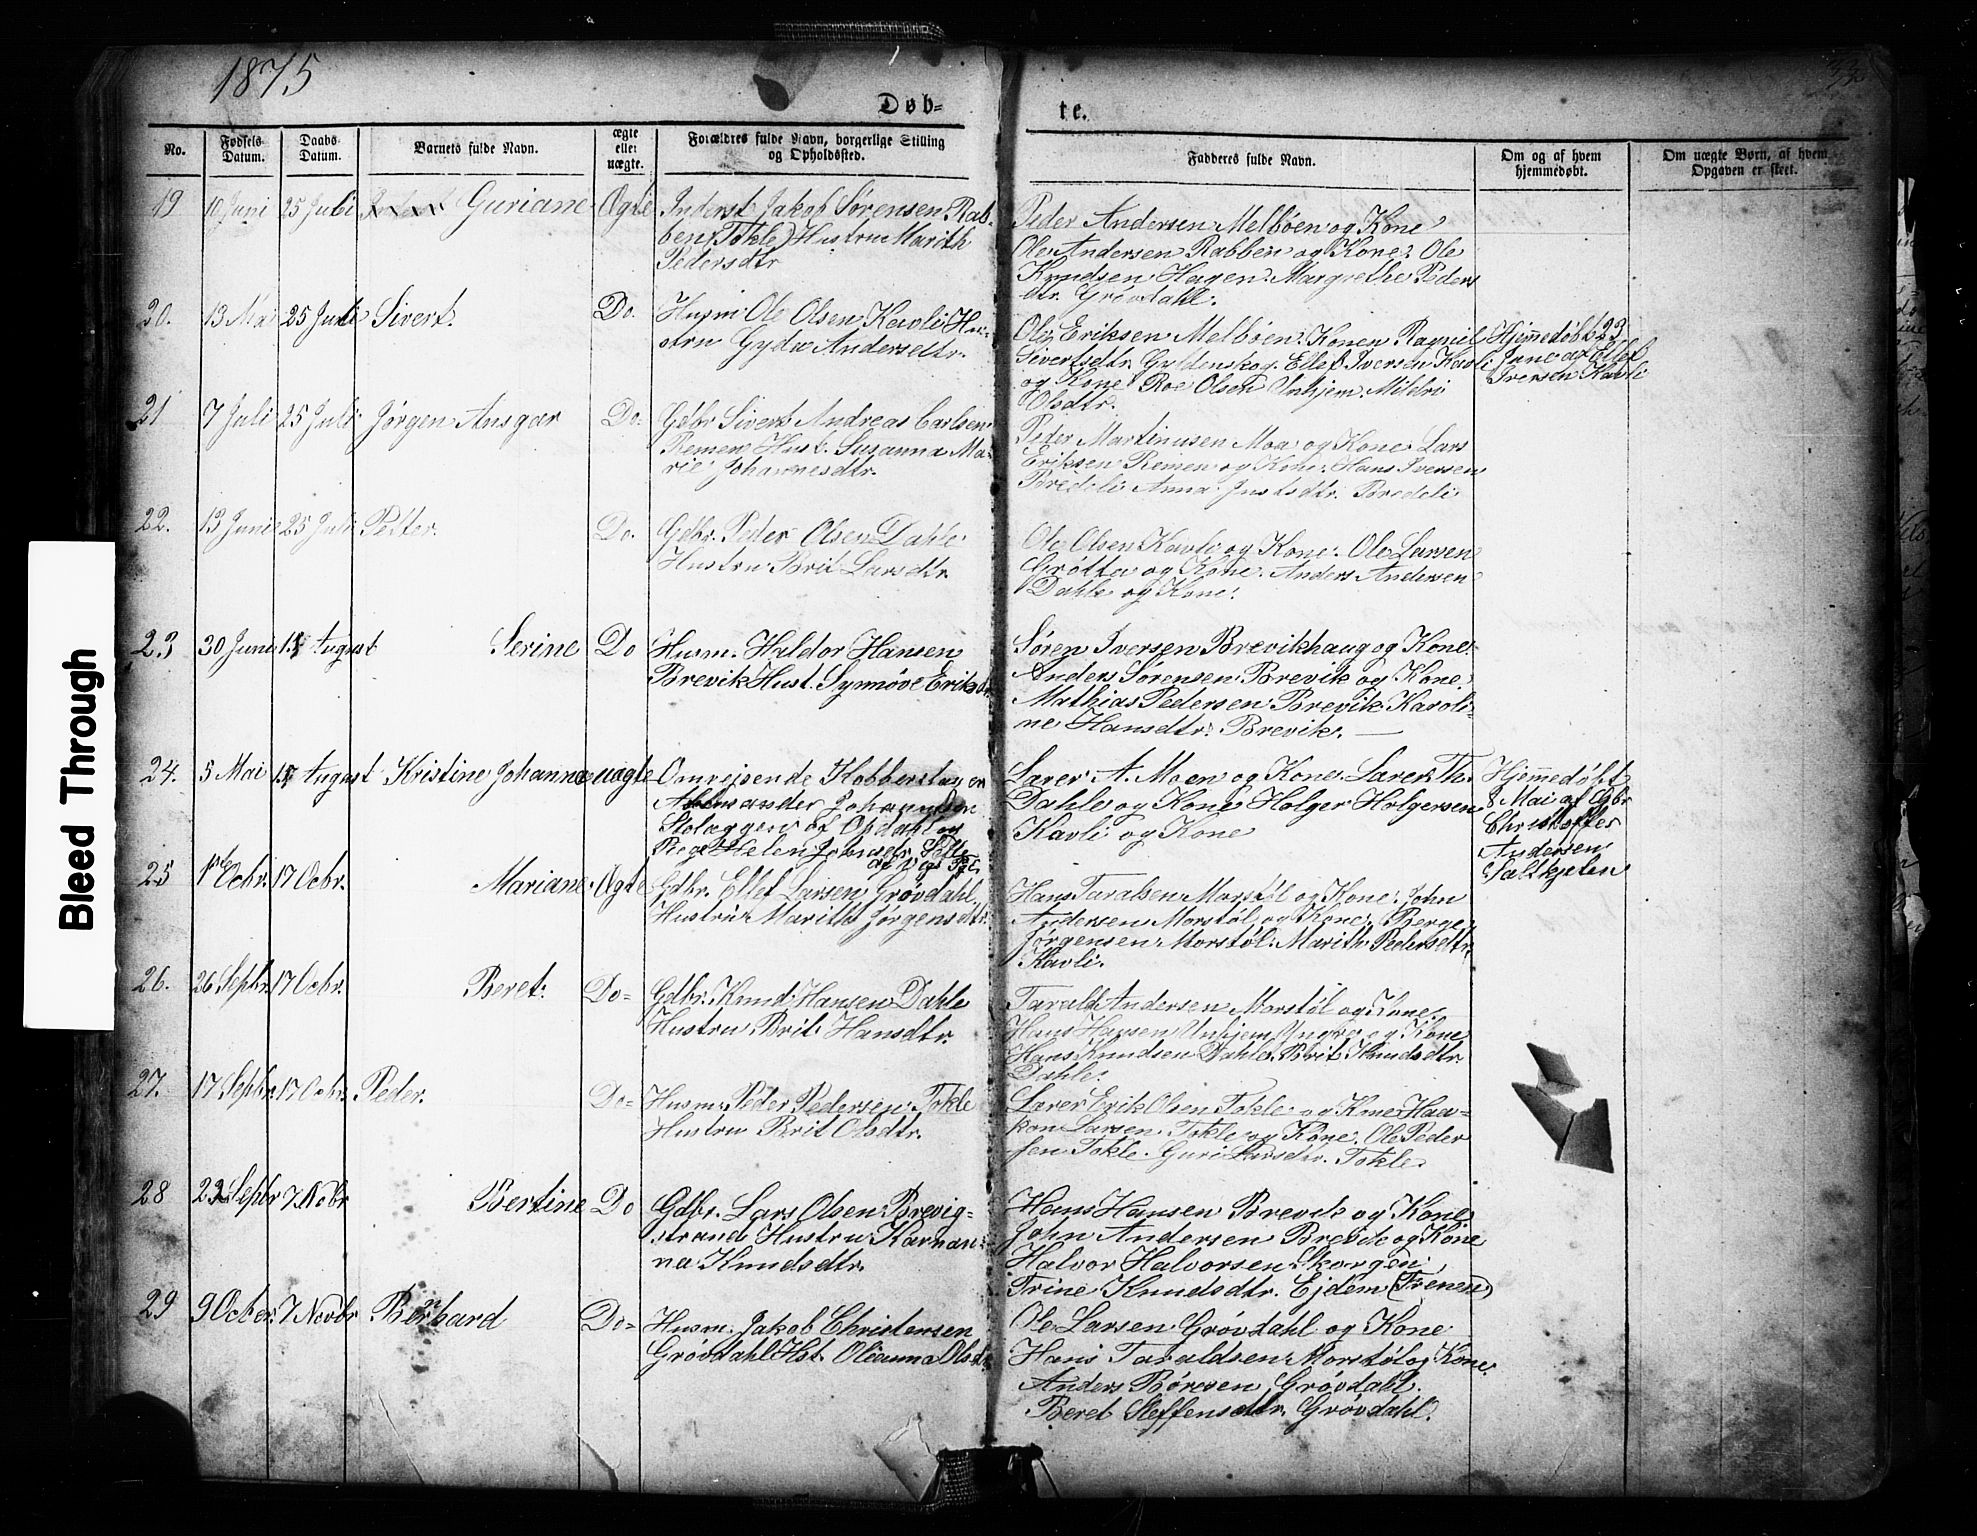 1875
Døb-
te.
No.
Fødsels-
Datum.
Daabs-
Datum.
Barnets fulde Navn.
ægte
eller
uægte.
Forældres fulde Navn, borgerlige Stilling
og Opholdssted.
Fadderes fulde Navn.
Om og af hvem
hjemmedøbt.
Om uægte Børn, af hvem
Opgaven er skeet.
19 10 Juni 25 Juli Guriane Ægte Inderst Jakob Sørensen Rab-
ben (Tokle) Hustru Marith
Pedersdtr
Peder Andersen Melbøen og Kone
Ole Andersen Rabben og Kone. Ole
Knudsen Hagen. Margrethe Peders
dtr. Grøvdahl.
20. 13 Mai 25 Juli Sivert. Do. Husm. Ole Olsen Kavli Hu-
stru Gyda Andersdtr.
Ole Eriksen Melbøen. Konen Ragniel
Sivertsdtr. Gyldenskog. Ellef Iversen Kavli
og Kone Roe Olsen Unhjem. Mildri
Olsdtr.
Hjemmedøbt 23
Juno af Ellef
Iversen Kavli
21 7 Juli 25 Juli Jørgen Ansgar Do. Gdbr Sivert Andreas Carlsen
Remen Hust. Susanna Ma-
rie Johannesdtr.
Peder Martinusen Moa og Kone Lars
Eriksen Remen og Kone. Hans Iversen
Bredeli Anna Justsdtr. Bredeli
22. 13 Juni 25 Juli Petter. Do. Gdbr. Peder Olsen Dahle
Hustru Brit Larsdtr
Ole Olsen Kavli og Kone. Ole Larsen
Grøtta og Kone. Anders Andersen
Dahle og Kone.
23 30 Juni 15 August Serine Do Husm. Haldor Hansen
Brevik Hust. Synnøve Eriksdtr.
Søren Iversen Brevikhaug og Kone.
Anders Sørensen Brevik og Kone.
Mathias Pedersen Brevik Karoli-
ne Hansdtr. Brevik.
24. 5 Mai 15 August Kristine Johanna uægte Omreisende Kobberslager
Johannesen
af Opdahl og
Pige Helen Johnsdtr.
Lærer A. Moen og Kone. Lærer Th.
Dahle og Kone Holger Holgersen
Kavli og Kone
Hjemmedøbt
8 Mai af Gbr
Christoffer
Andersen
Saltkjelen
25 1ste Ocbr. 17 Ocbr. Mariane Ægte Gdbr. Ellef Larsen Grøvdahl
Hustru Marith Jørgensdtr.
Hans Taralsen Morstøl og Kone. John
Andersen Morstøl og Kone. Berge
Jørgensen Morstøl. Marith Pedersdtr.
Kavli.
26. 26 Sepbr. 17 Ocbr. Beret. Do- Gdbr. Knud Hansen Dahle
Hustru Brit Hansdtr.
Tarald Andersen Morstøl og Kone.
Hans Hansen Unhjem Yngre og Kone
Hans Knudsen Dahle. Brit Knudsdtr.
Dahle.
27. 17 Sepbr. 17 Ocbr. Peder. Do- Husm. Peder Pedersen Tokle
Hustru Brit Olsdtr.
Lærer Erik Olsen Tokle og Kone Haa-
kon Larsen Tokle og Kone. Ole Peder
sen Tokle. Guri Larsdtr. Tokle.
28 22 Sepbr 7 Novbr Bertine Do Gdbr. Lars Olsen Brevig-
strand Hustru Karnan-
na Knudsdtr.
Hans Hansen Brevik og Kone
John Andersen Brevik og Kone
Halvor Halvorsen Skorgen,
Trine Knudsdtr. Ejdem (Trenen)
29 9 Ocber. 7 Novbr Bernhard Do- Husm. Jakob Christensen
Grøvdahl Hst. Olianna Olsdtr
Ole Larsen Grøvdahl og Kone
Hans Taraldsen Morstøl og Kone.
Anders Børesen Grøvdahl.
Beret Steffensdtr. Grøvdahl.
Bleed Through